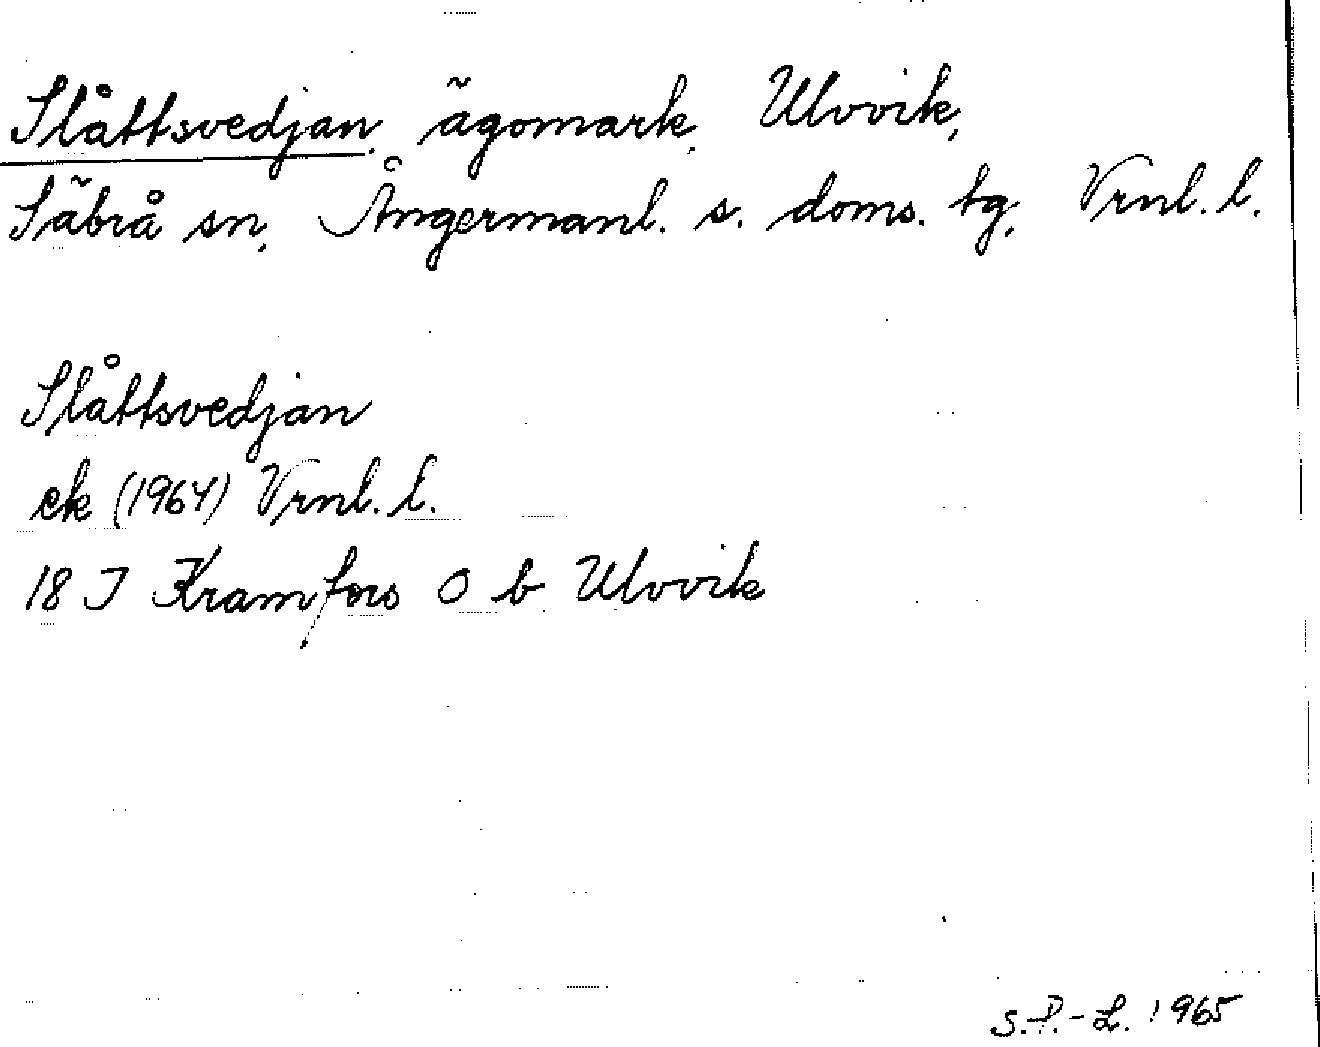 Slåttsvedjan, ägomark, Ulvvik,
Säbrå sn, Ångermanl. s. doms. tg, Vrnl. l.
Slåttsvedjan
ek (1964) Vrnl. l.
18 J Kramfors O b Ulvvik
S.P.-L. 1965